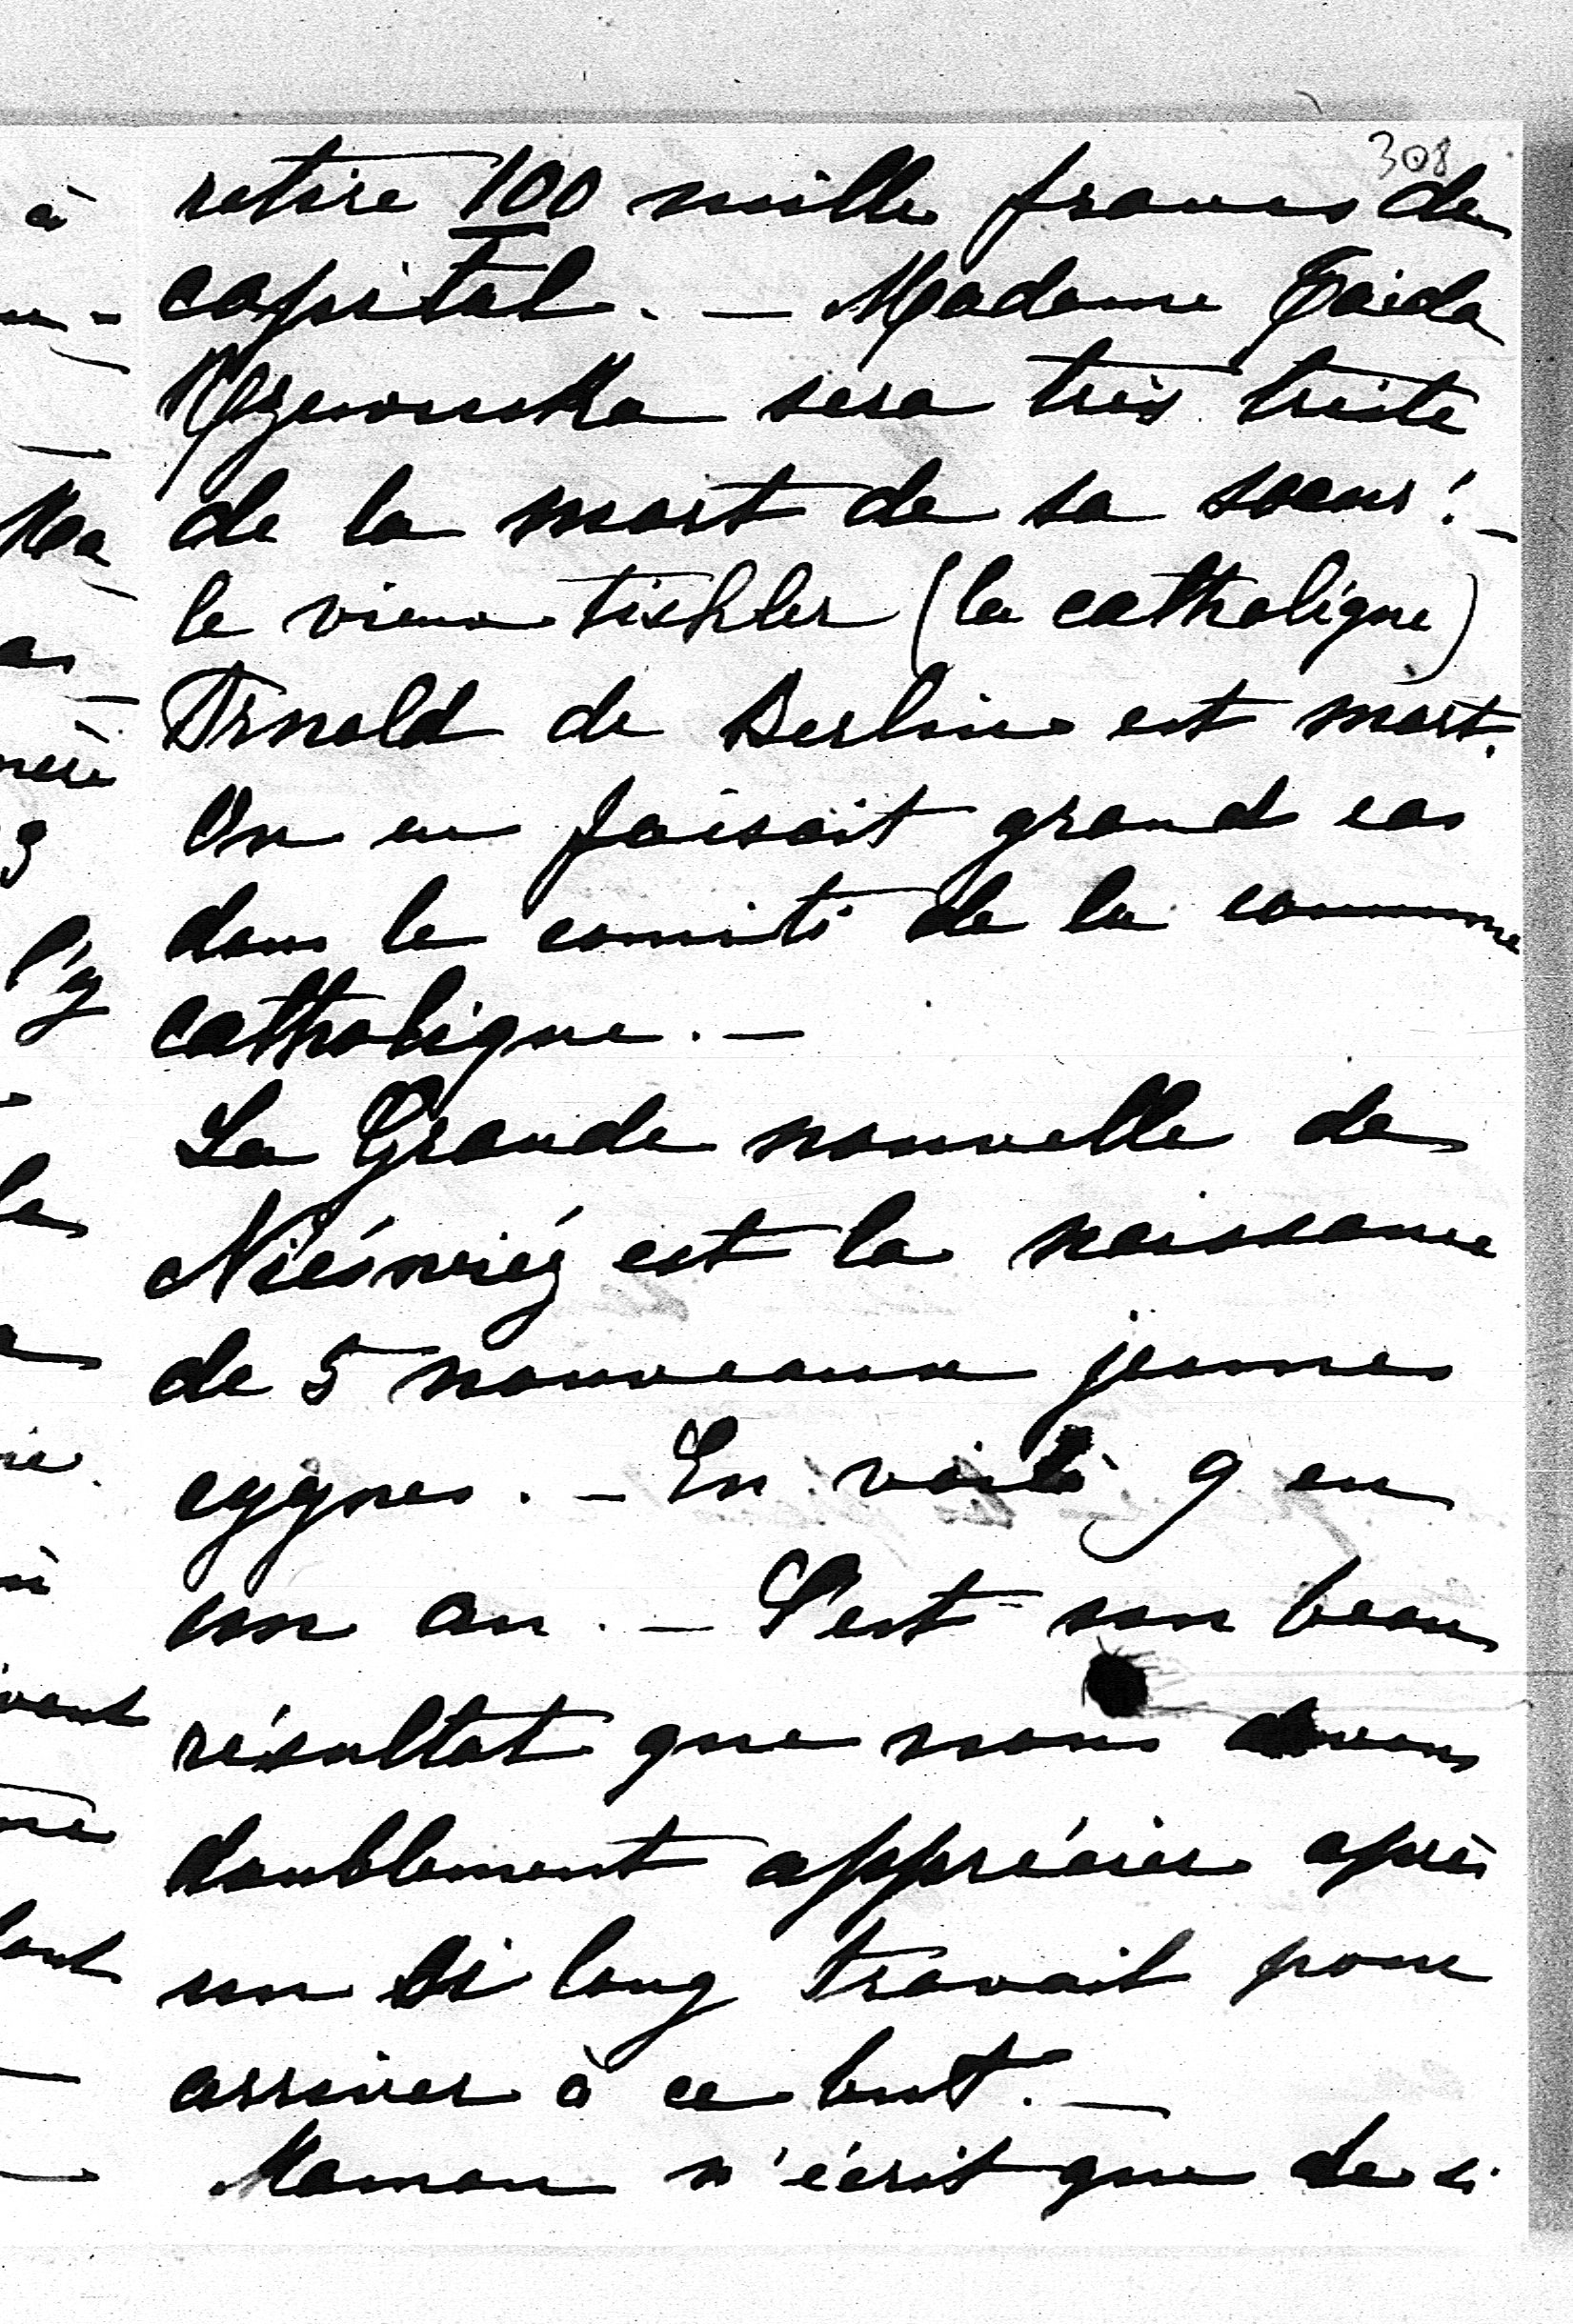 308
retire 100 mille francs de
capital. — Madame Taïda
Rzewuska sera très triste
de la mort de sa soeur! —
le vieux tischler (la catholique)
Arnold de Berlin est mort.
On en faisait grand cas
dans le comité de la commune
catholique. —
La Grande nouvelle de
Nieświéz est la naissance
de 5 nouveaux jeunes
cygnes. — En voilà 9 en
un an. — C'est un beau
résultat que nous devons
doublement apprécier après
un si long travail pour
arriver à ce but. —
Maman n'écrit que de si